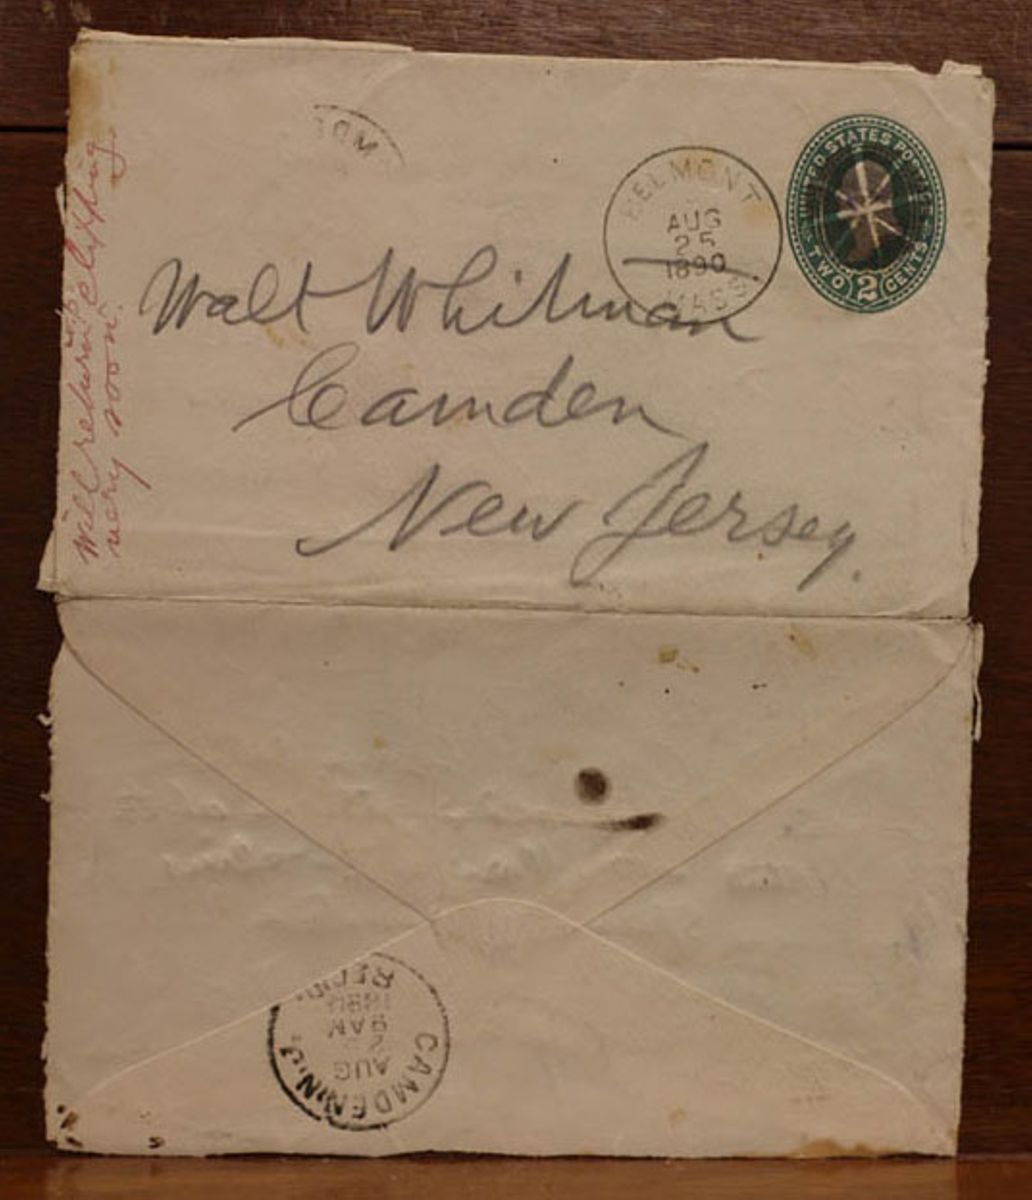 BELMONT
AUG
25
1890
MASS
UNITED STATES POSTAGE
TWO 2 CENTS
Walt Whitman
Camden
New Jersey.
Will return clipping
very soon.
CAMDEN, N.J.
AUG
9 AM
REC'D.